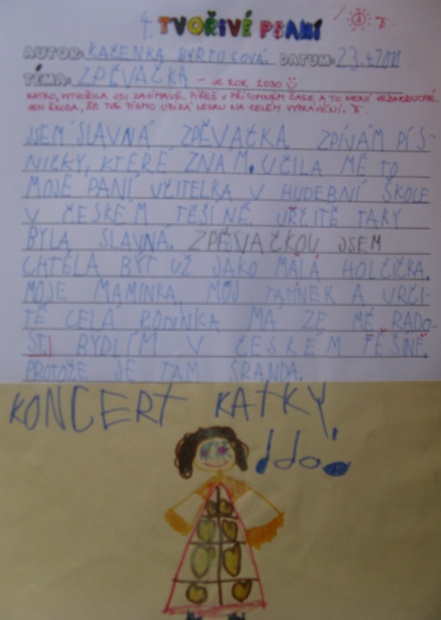 4. TVOŘIVÉ PSANÍ
AUTOR: KAŽENKA BYRTUSOVÁ DATUM: 23.4.2011
TÉMA: ZPĚVAČKA - JE ROK 2030
KATKO, VYTVOŘILA JSI ZAJÍMAVÉ, PÍŠEŠ V PŘÍTOMNÉM ČASE A TO NENÍ JEDNODUCHÉ.
JEN ŠKODA, ŽE TVÉ PÍSMO UBÍRÁ LESKU NA CELÉM VYPRÁVĚNÍ.
JSEM SLAVNÁ ZPĚVAČKA ZPÍVÁM PÍS-
NIČKY, KTERÉ ZNÁM. UČILA MĚ TO
MOJE PANÍ UČITELKA V HUDEBNÍ ŠKOLE
V ČESKÉM TĚŠÍNĚ. URČITĚ TAKY
BYLA SLAVNÁ. ZPĚVAČKOU JSEM
CHTĚLA BÝT UŽ JAKO MALÁ HOLČIČKA.
MOJE MAMINKA, MŮJ TATÍNEK A URČI-
TĚ CELÁ RODINKA MÁ ZE MĚ RADO-
ST. BYDLÍM V ČESKÉM TĚŠÍNĚ.
PROTOŽE JE TAM SRANDA.
KONCERT KATKY